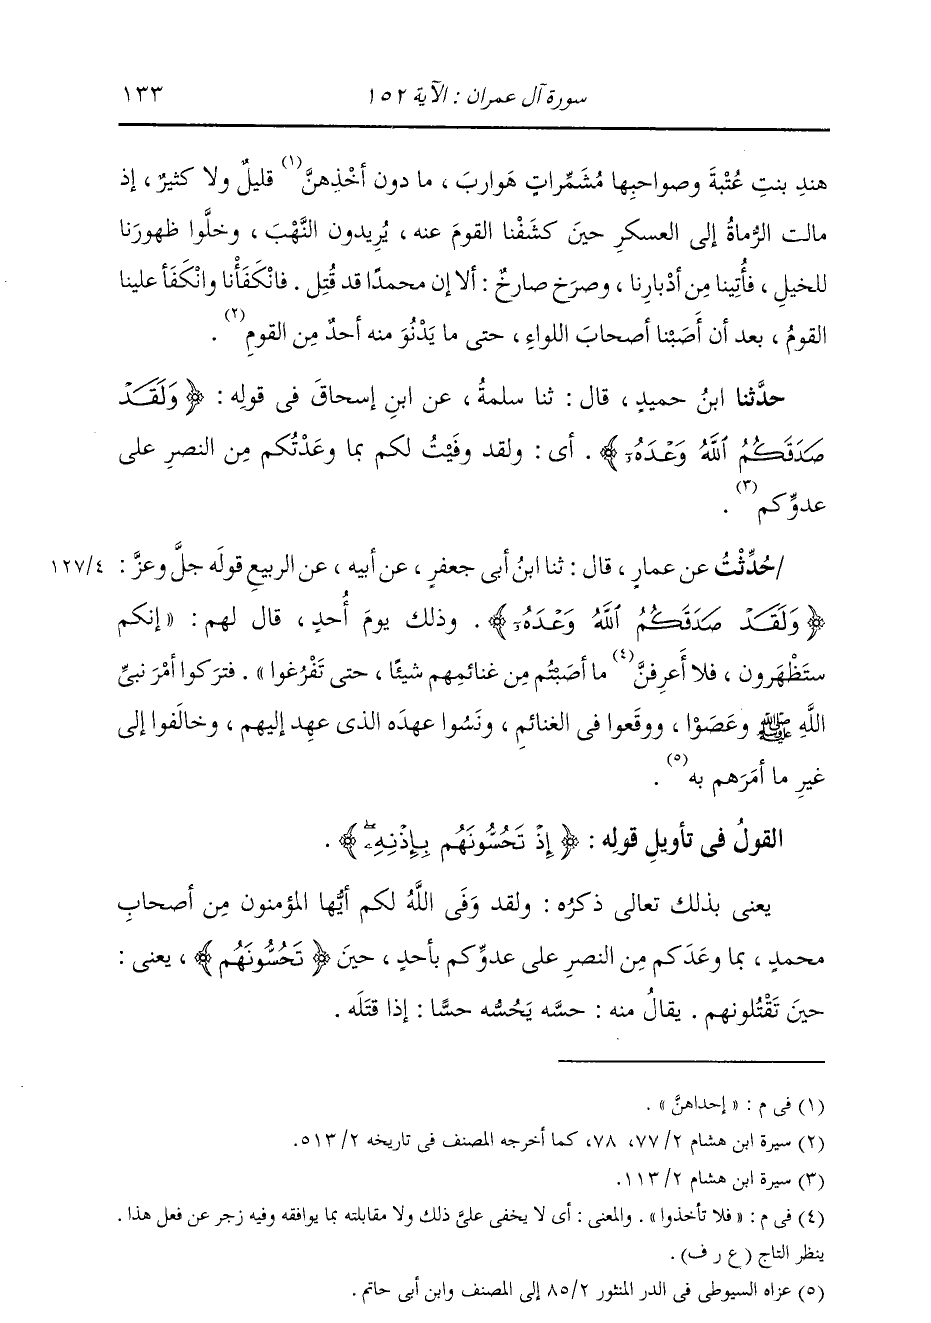 سورة آل عمران : الآية ١٥٢ ١٣٣
هندِ بنتِ عُتْبةَ وصواحبِها مُشَمِّراتٍ هَوارِبَ ، ما دون أخْذِهنَّ(١) قليلٌ ولا كثيرٌ ، إذ
مالت الرُّماةُ إلى العسكرِ حينَ كشَفْنا القومَ عنه ، يُرِيدون النَّهْبَ ، وخلَّوا ظهورَنا
للخيلِ ، فأُتِينا مِن أدْبارِنا ، وصرَخ صارخٌ : ألا إن محمدًا قد قُتِل . فانْكَفَأْنا وانْكَفَأ علينا
القومُ ، بعد أن أَصَبْنا أصحابَ اللواءِ ، حتى ما يَدْنُوَ منه أحدٌ مِن القومِ(٢) .
حدَّثنا ابنُ حميدٍ ، قال : ثنا سلمةُ ، عن ابنِ إسحاقَ فى قولِه : ﴿ وَلَقَدْ
صَدَقَكُمُ ٱللَّهُ وَعْدَهُۥٓ ﴾ . أى : ولقد وفَيْتُ لكم بما وعَدْتُكم مِن النصرِ على
عدوِّكم(٣) .
/حُدِّثْتُ عن عمارٍ ، قال : ثنا ابنُ أبى جعفرٍ ، عن أبيه ، عن الربيعِ قولَه جلَّ وعزَّ : ١٢٧/٤
﴿ وَلَقَدْ صَدَقَكُمُ ٱللَّهُ وَعْدَهُۥٓ ﴾ . وذلك يومَ أُحدٍ ، قال لهم : « إنكم
ستَظْهَرون ، فلا أَعرِفنَّ(٤) ما أصَبْتُم مِن غنائمِهم شيئًا ، حتى تَفْرُغوا » . فترَكوا أمْرَ نبىِّ
اللَّهِ ﷺ وعَصَوْا ، ووقَعوا فى الغنائمِ ، ونَسُوا عهدَه الذى عهِد إليهم ، وخالَفوا إلى
غيرِ ما أمَرَهم به(٥) .
القولُ فى تأويلِ قولِه : ﴿ إِذْ تَحُسُّونَهُم بِإِذْنِهِۦۖ ﴾ .
يعنى بذلك تعالى ذكرُه : ولقد وَفَى اللَّهُ لكم أيُّها المؤمنون مِن أصحابِ
محمدٍ ، بما وعَدَكم مِن النصرِ على عدوِّكم بأحدٍ ، حينَ ﴿ تَحُسُّونَهُم ﴾ ، يعنى :
حينَ تَقْتُلونهم . يقالُ منه : حسَّه يَحُسُّه حسًّا : إذا قتَلَه .
(١) فى م : « إحداهنَّ » .
(٢) سيرة ابن هشام ٢/ ٧٧، ٧٨، كما أخرجه المصنف فى تاريخه ٢/ ٥١٣.
(٣) سيرة ابن هشام ٢/ ١١٣.
(٤) فى م : « فلا تأخذوا » . والمعنى : أى لا يخفى علىَّ ذلك ولا مقابلته بما يوافقه وفيه زجر عن فعل هذا .
ينظر التاج (ع ر ف) .
(٥) عزاه السيوطى فى الدر المنثور ٨٥/٢ إلى المصنف وابن أبى حاتم .